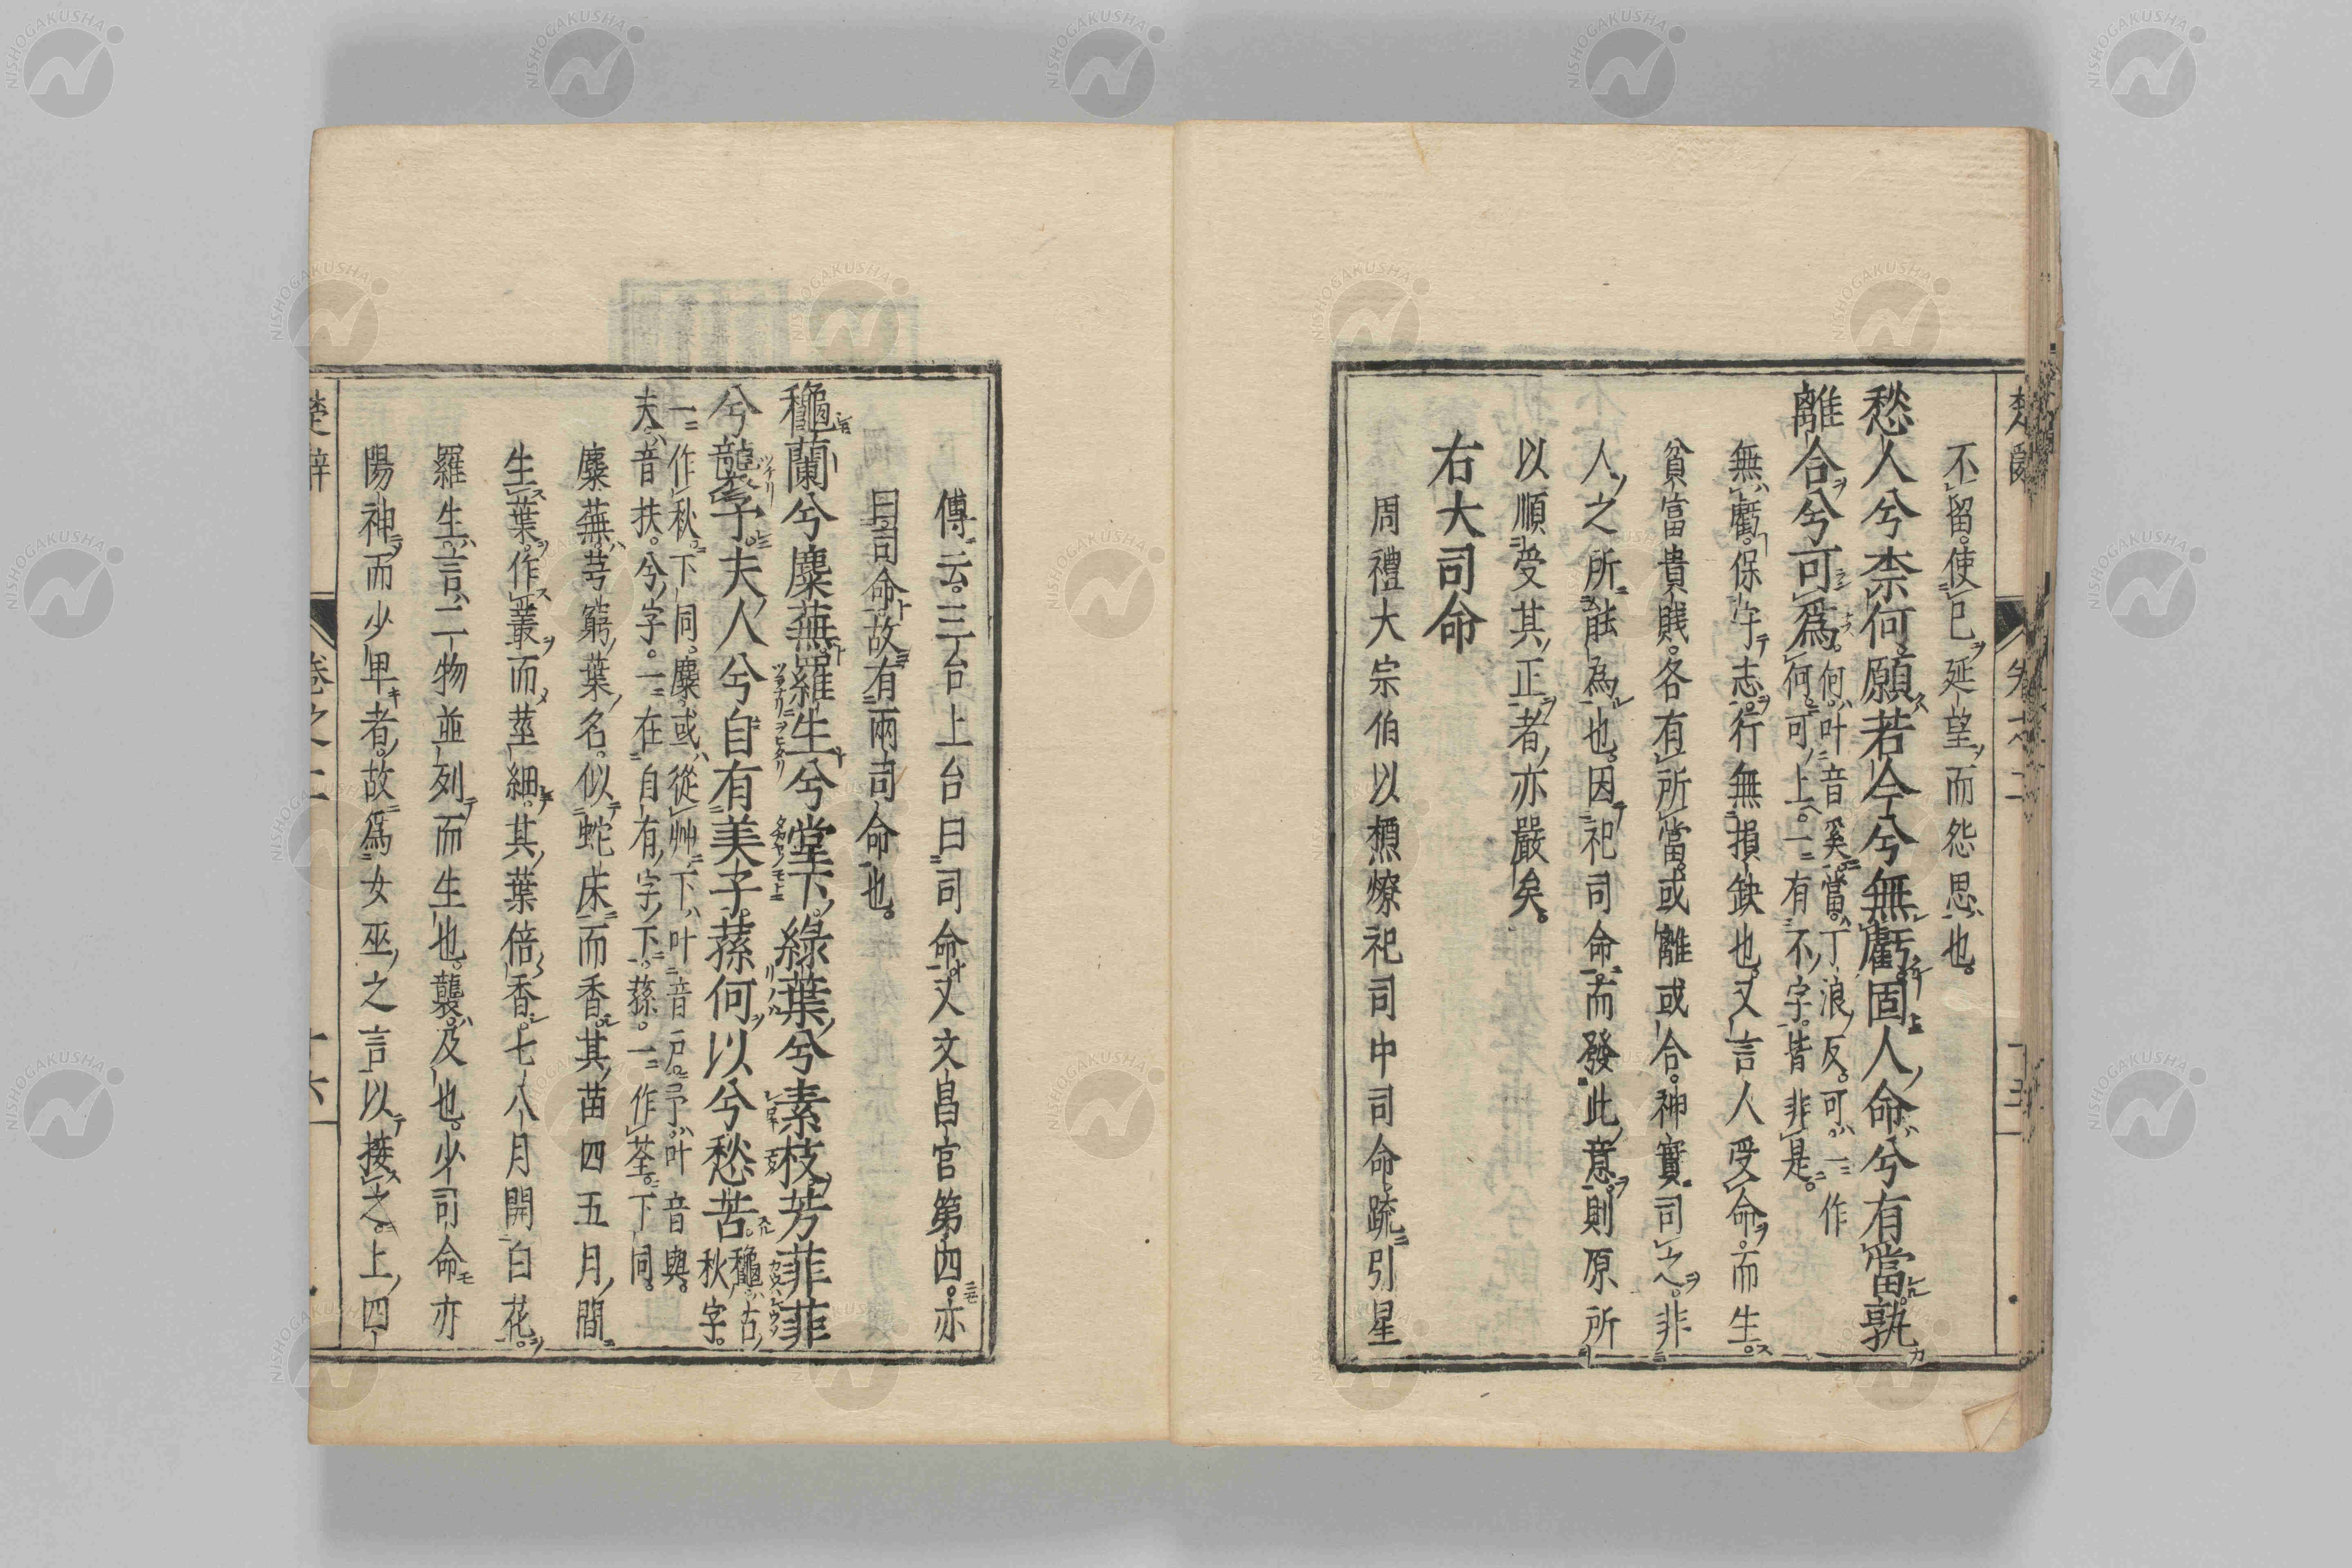 不留使已延望而怨思也
愁人兮柰何願若今兮無虧固人命兮有當孰
離合兮可爲何叶音奚當丁浪反可一作
何可上一有不字皆非是
無虧保守志行無損缺也又言人受命而生
貧富貴賤各有所當或離或合神實司之非
人之所能為也因祀司命而發此意則原所
以順受其正者亦嚴矣
右大司命
周禮大宗伯以槱燎祀司中司命疏引星
傳云三台上台曰司命又文昌宮第四亦
曰司命故有兩司命也
穐蘭兮麋蕪羅生兮堂下綠葉兮素枝芳菲菲
兮襲予夫人兮自有美子蓀何以兮愁苦穐古
秋字
一作秋下同麋或從艸下叶音戶予叶音與
夫音扶兮字一在自有字下蓀一作荃下同
麋蕪芎藭葉名似蛇床而香其苗四五月間
生葉作叢而莖細其葉倍香七八月開白花
羅生言二物並列而生也襲及也少司命亦
陽神而少卑者故爲女巫之言以接之上四
楚辭 卷之二